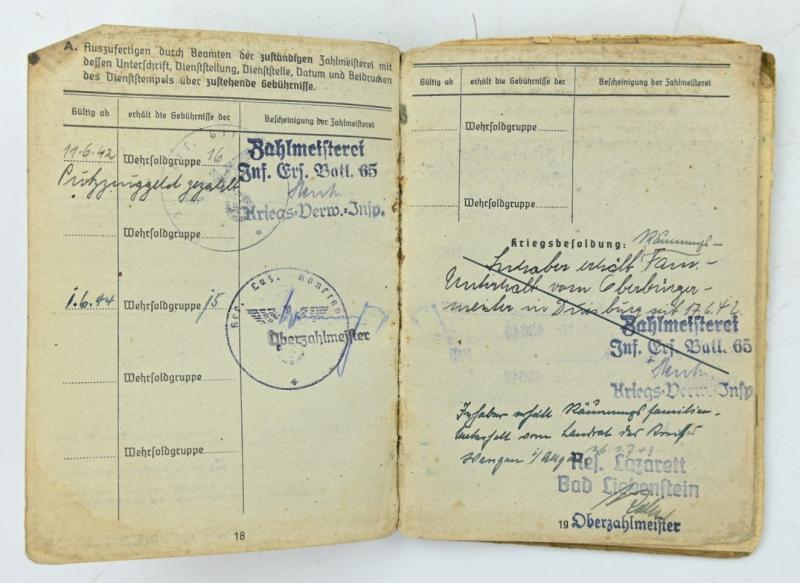 A. Auszufertigen durch Beamten der zuständigen Zahlmeisterei mit
dessen Unterschrift, Dienststellung, Dienststelle, Datum und Beidrucken
des Dienststempels über zustehende Gebührnisse.
Gültig ab
erhält die Gebührnisse der
Bescheinigung der Zahlmeisterei
11.6.42
Wehrsoldgruppe 16
Zahlmeisterei
Inf. Ers. Batl. 65
Kriegs-Verw.-Insp.
gezahlt
Wehrsoldgruppe
1.6.44
Wehrsoldgruppe 15
Oberzahlmeister
Wehrsoldgruppe
Wehrsoldgruppe
18
Gültig ab
erhält die Gebührnisse der
Bescheinigung der Zahlmeisterei
Wehrsoldgruppe
Wehrsoldgruppe
Kriegsbesoldung: Räumungs-
Inhaber erhält Fam.-
Unterhalt vom Oberbürger-
meister in seit 17.6.42
Zahlmeisterei
Inf. Ers. Batl. 65
Kriegs-Verw.-Insp
Inhaber erhält Räumungsfamilien-
unterhalt vom Landrat des Kreises
Wangen i/Allg
Res. Lazarett
Bad Liebenstein
19
Oberzahlmeister